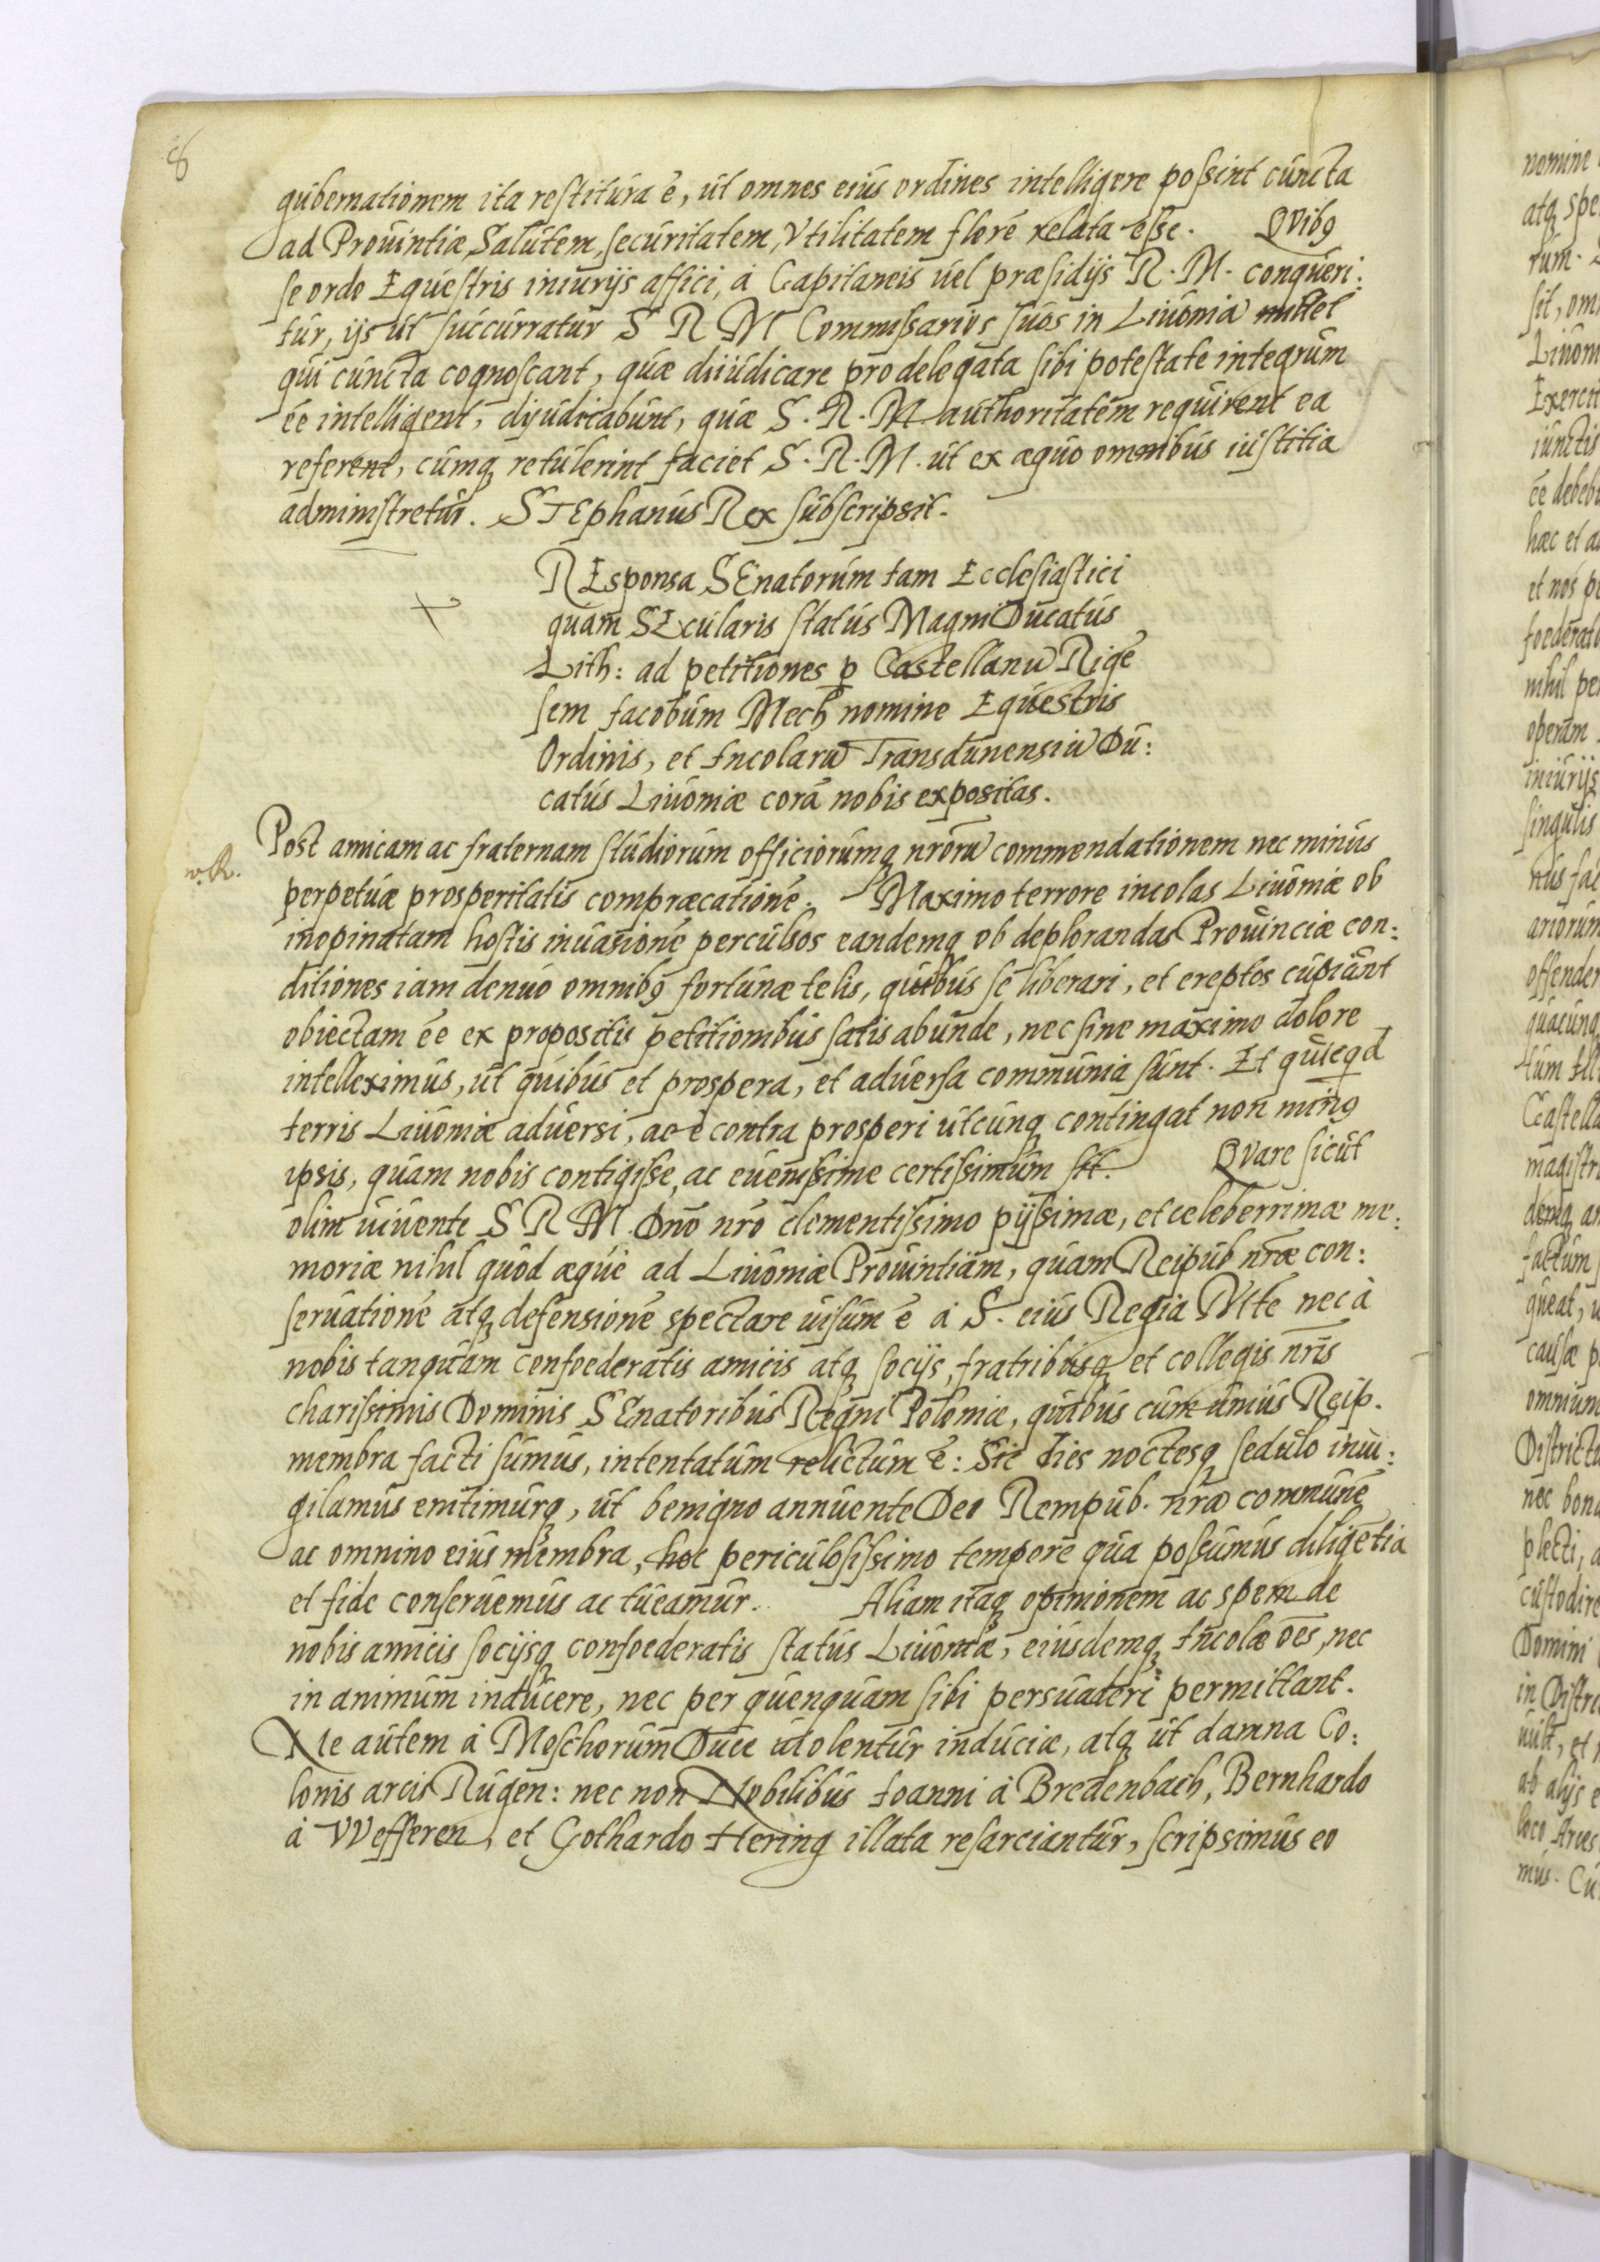 8
gubernationem ita restitura ē, ut omnes eius ordines intelligere possint cuncta
ad Provintiæ Salutem, securitatem, Vtilitatem florē relata esse. QVibꝰ
se ordo Equestris iniurijs affici, á Capitaneis vel præsidijs R. M. conqueri:
tur, ijs ut succurratur S R M Commissarios suos in Livoniā mittet
qui cuncta cognoscant, quæ diiudicare pro delegata sibi potestate integrum
ēe intelligent, dijudicabunt, quæ S. R. M authoritatem requirent ea
referent, cumqꝫ retulerint faciet S. R. M. ut ex æquo omnibus iustitia
administretur. STEphanus Rex subscripsit.
REsponsa SEnatorum tam Ecclesiastici
quam SÆcularis status Magni Ducatus
Lith: ad petitiones ꝑ Castellanū Rigē
sem Iacobum Mech nomine Equestris
Ordinis, et Incolarū Transdunensiū Du:
catus Livoniæ corā nobis expositas.
Post amicam ac fraternam studiorum officiorumqꝫ nrōrū commendationem nec minus
w.R.
perpetuæ prosperitatis compræcationē. Maximo terrore incolas Livoniæ ob
inopinatam hostis invasionē perculsos eandemqꝫ ob deplorandas Provinciæ con:
ditiones iam denuó omnibꝰ fortunæ telis, quibus se liberari, et ereptos cupiant
obiectam ēe ex propositis petitionibus satis abunde, nec sine maximo dolore
intelleximus, ut quibus et prospera, et adversa communia sunt. Et quicqd
terris Livoniæ adversi, ac è contra prosperi utcunqꝫ contingat non minꝰ
ipsis, quam nobis contigisse, ac evenissime certissimum sit. QVare sicut
olim vivente S R M Dnō nrō clementissimo pijssimæ, et celeberrimæ me:
moriæ nihil quod æque ad Livoniæ Provintiam, quam Reipub nrāe con:
servationē atqꝫ defensionē spectare visum ē á S. eius Regia Mte nec à
nobis tanquam confoederatis amicis atqꝫ socijs, fratribusqꝫ et collegis nrīs
charissimis Dominis SEnatoribus Regni Poloniæ, quibus cum unius Reip.
membra facti sumus, intentatum relictum ē: Sic dies noctesqꝫ sedulo invi:
gilamus enitimurqꝫ, ut benigno annuente Deo Rempub. nrām communē
ac omnino eius membra, hoc periculosissimo tempore qua possumus diligētia
et fide conservemus ac tueamur. Aliam itaqꝫ opinionem ac spem de
nobis amicis socijsqꝫ confoederatis status Livoniæ, eiusdemqꝫ Incolæ oēs, nec
in animum inducere, nec per quenquam sibi persuaderi permittant.
Ne autem á Moschorum Duce violentur induciæ, atqꝫ ut damna Co:
lonis arcis Rugen: nec non Nobilibus Ioanni á Bredenbach, Bernhardo
á VVefferen, et Gothardo Hering illata resarciantur, scripsimus eo